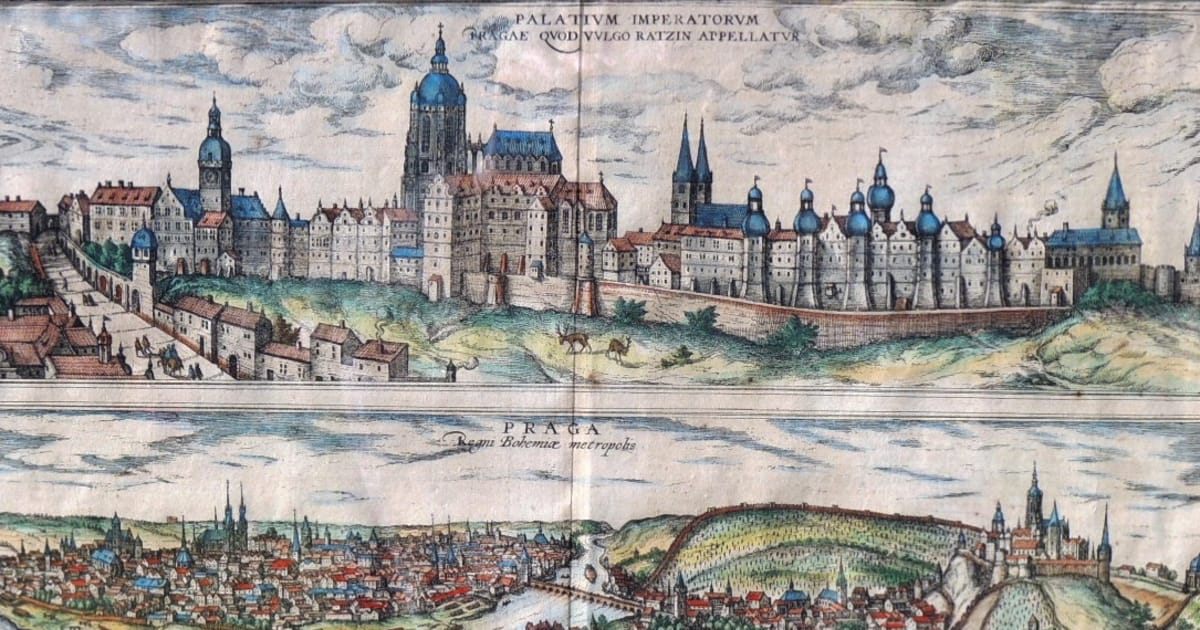 PALATIVM IMPERATORVM
PRAGAE QVOD VVLGO RATZIN APPELLATVR
PRAGA
Regni Bohemiæ metropolis